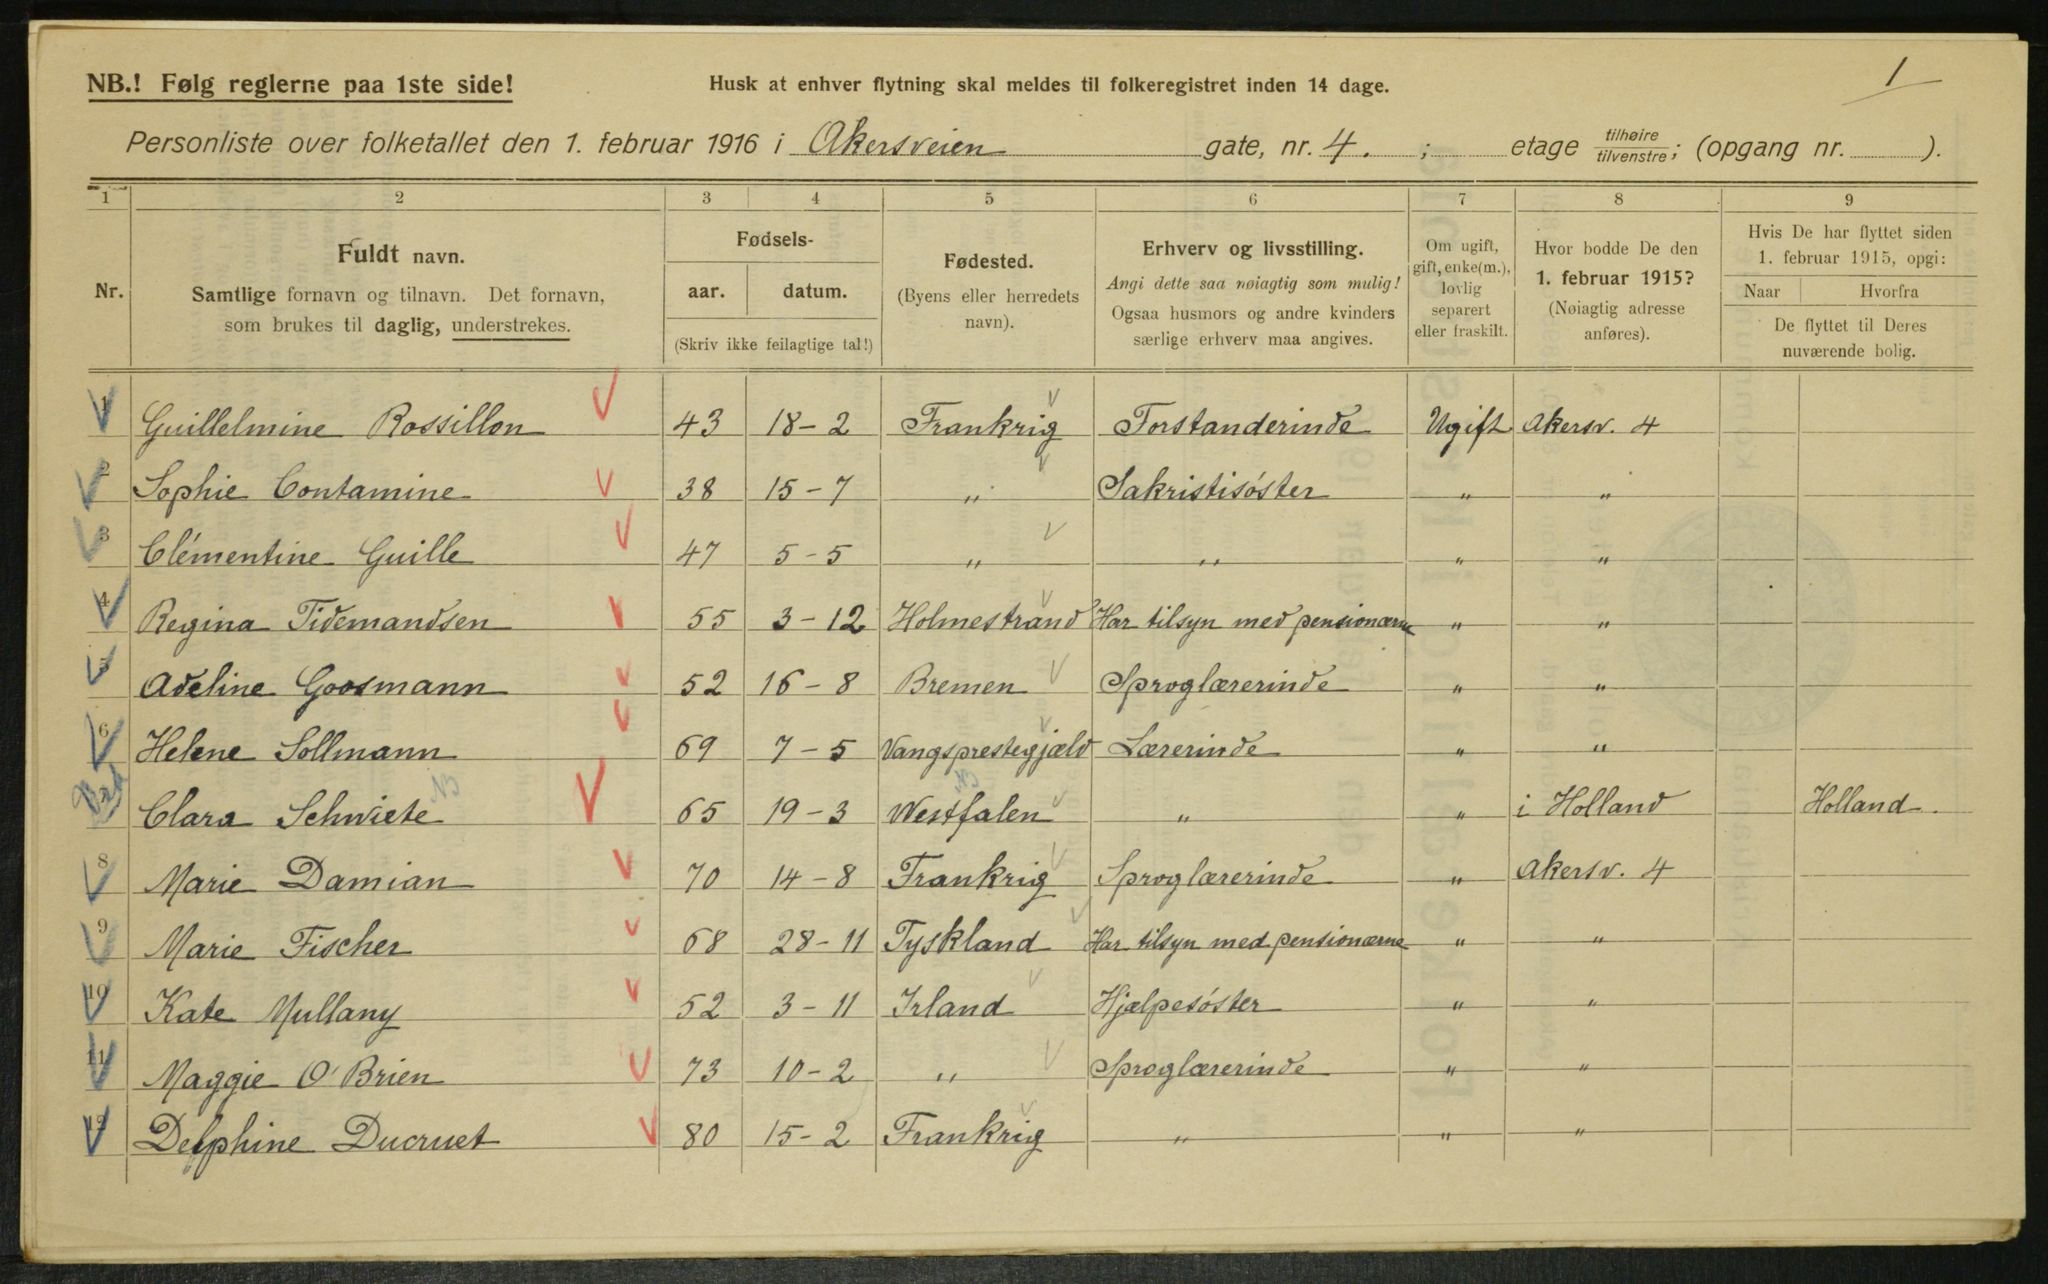 1
NB.! Følg reglerne paa 1ste side! Husk at enhver flytning skal meldes til folkeregistret inden 14 dage.
Personliste over folketallet den 1. februar 1916 i Akersveien gate, nr. 4. ; etage tilhøire/tilvenstre; (opgang nr. ).
1 2 3 4 5 6 7 8 9
Nr.
Fuldt navn.
Samtlige fornavn og tilnavn. Det fornavn,
som brukes til daglig, understrekes.
Fødsels-
aar. datum.
(Skriv ikke feilagtige tal!)
Fødested.
(Byens eller herredets
navn).
Erhverv og livsstilling.
Angi dette saa nøiagtig som mulig!
Ogsaa husmors og andre kvinders
særlige erhverv maa angives.
Om ugift,
gift, enke(m.),
lovlig
separert
eller fraskilt.
Hvor bodde De den
1. februar 1915?
(Nøiagtig adresse
anføres).
Hvis De har flyttet siden
1. februar 1915, opgi:
Naar Hvorfra
De flyttet til Deres
nuværende bolig.
1 Guillelmine Rossillon 43 18-2 Frankrig Forstanderinde Ugift Akersv. 4
2 Sophie Contamine 38 15-7 " Sakristisöster " "
3 Clémentine Guille 47 5-5 " " " "
4 Regina Tidemandsen 55 3-12 Holmestrand Har tilsyn med pensionærne " "
5 Adeline Goosmann 52 16-8 Bremen Sproglærerinde " "
6 Helene Sollmann 69 7-5 Vangsprestegjæld Lærerinde " "
Clara Schwiete NB 65 19-3 Westfalen NB " " i Holland Holland.
8 Marie Damian 70 14-8 Frankrig Sproglærerinde " Akersv. 4
9 Marie Fischer 68 28-11 Tyskland Har tilsyn med pensionærne " "
10 Kate Mullany 52 3-11 Irland Hjælpesöster " "
11 Maggie O'Brien 73 10-2 " Sproglærerinde " "
12 Delphine Ducruet 80 15-2 Frankrig " " "